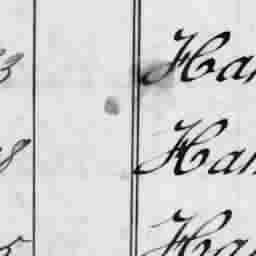 3 Han
8 Han
5 Han